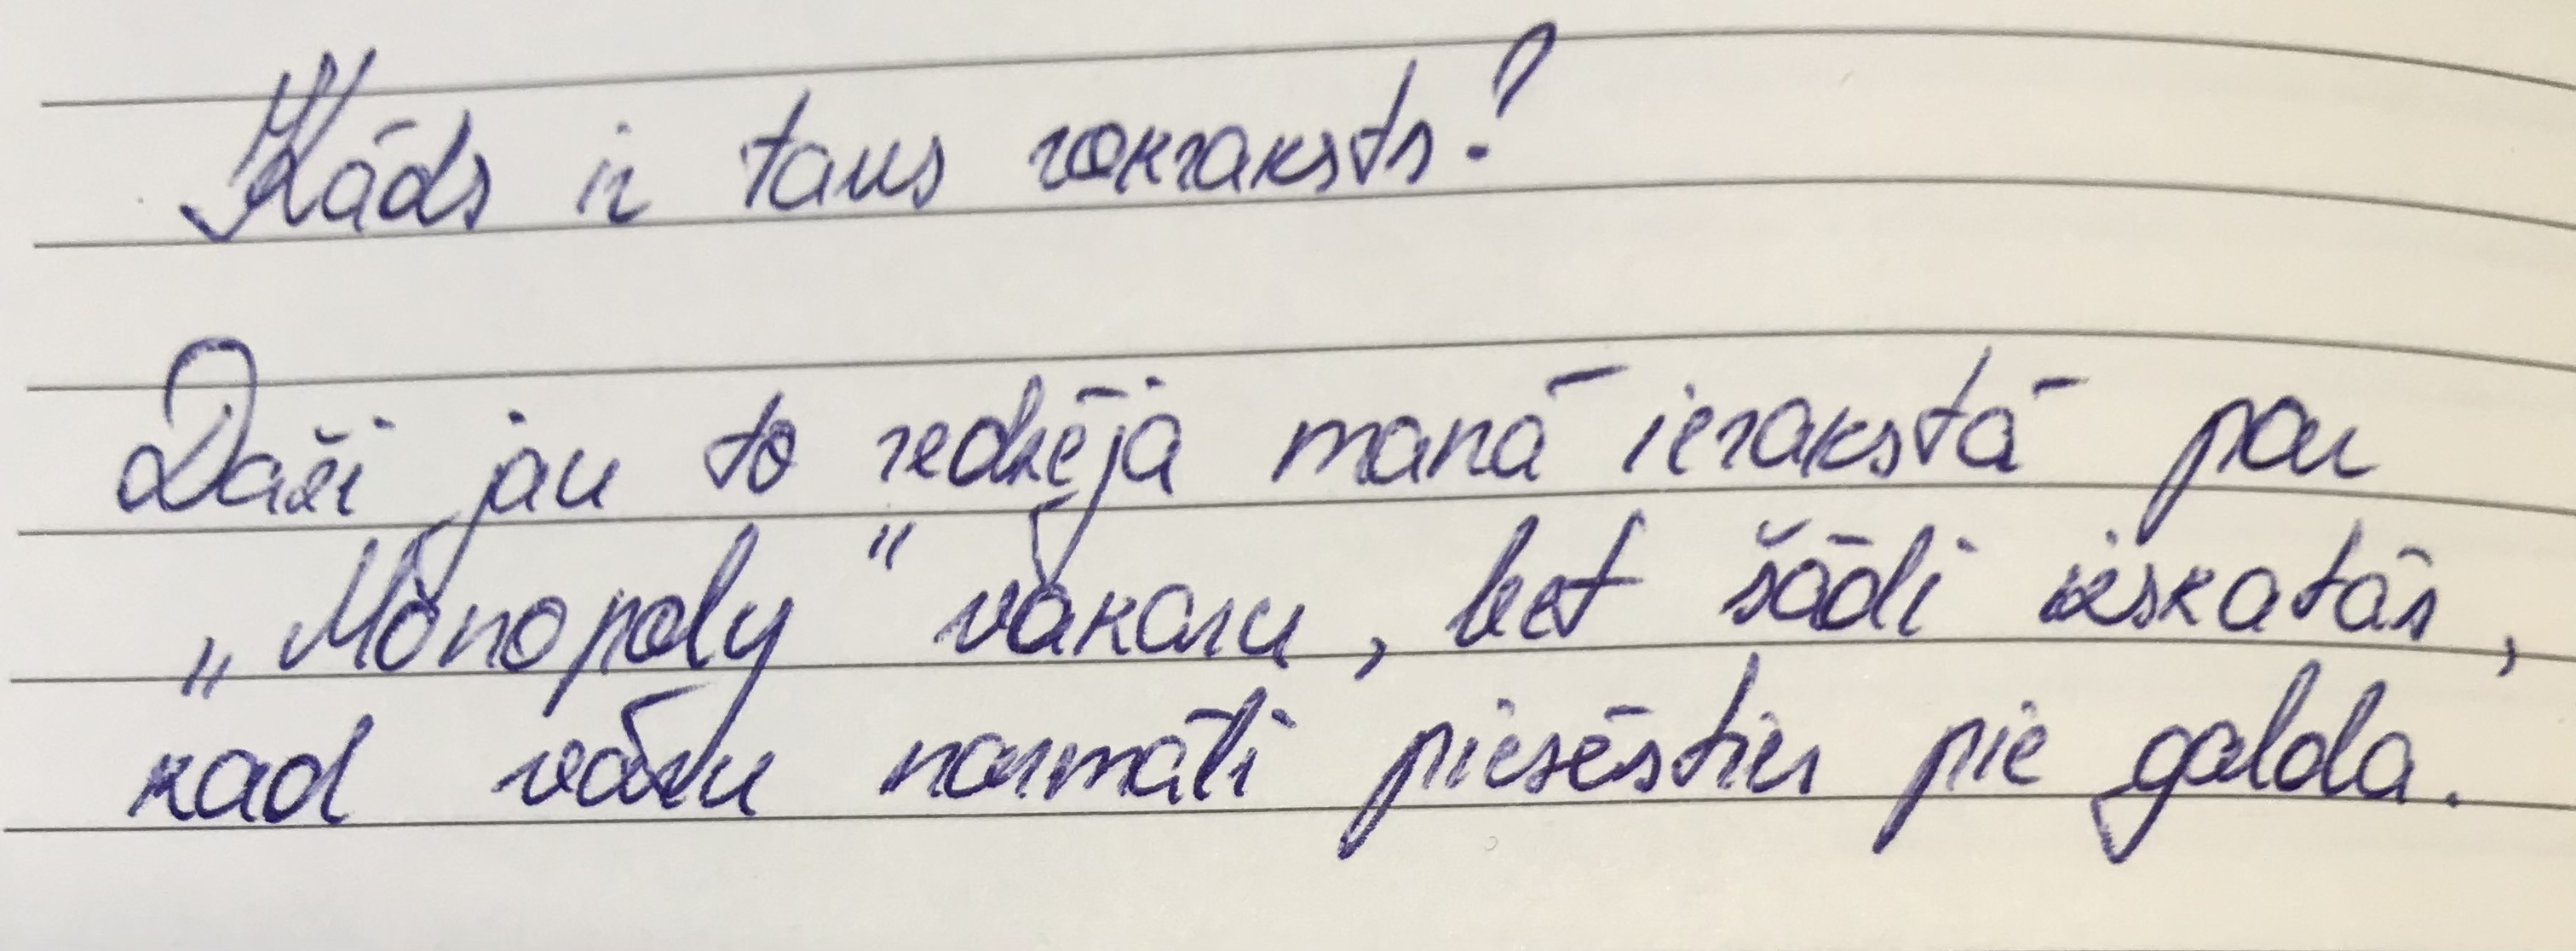 Kāds ir tavs rokraksts?
Daži jau to redzēja manā ierakstā par
„Monopoly" vakaru, bet šādi izskatās,
kad varu normāli piesēsties pie galda.